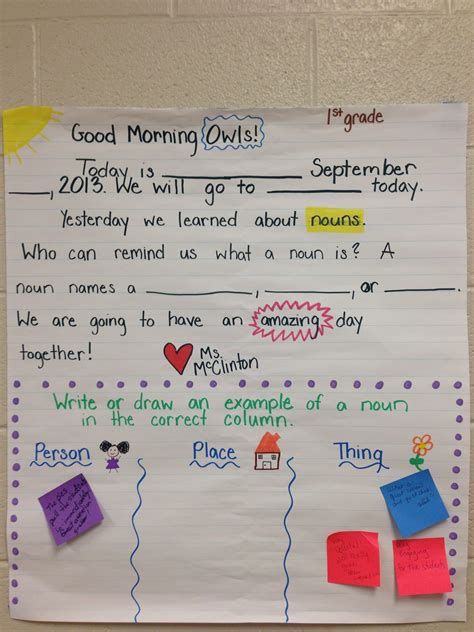 1st grade
Good Morning Owls!
Today is ________ September
____, 2013. We will go to ________ today.
Yesterday we learned about nouns.
Who can remind us what a noun is? A
noun names a ________, ________, or ________.
We are going to have an amazing day
together! Ms.
McClinton
Write or draw an example of a noun
in the correct column.
Person Place Thing